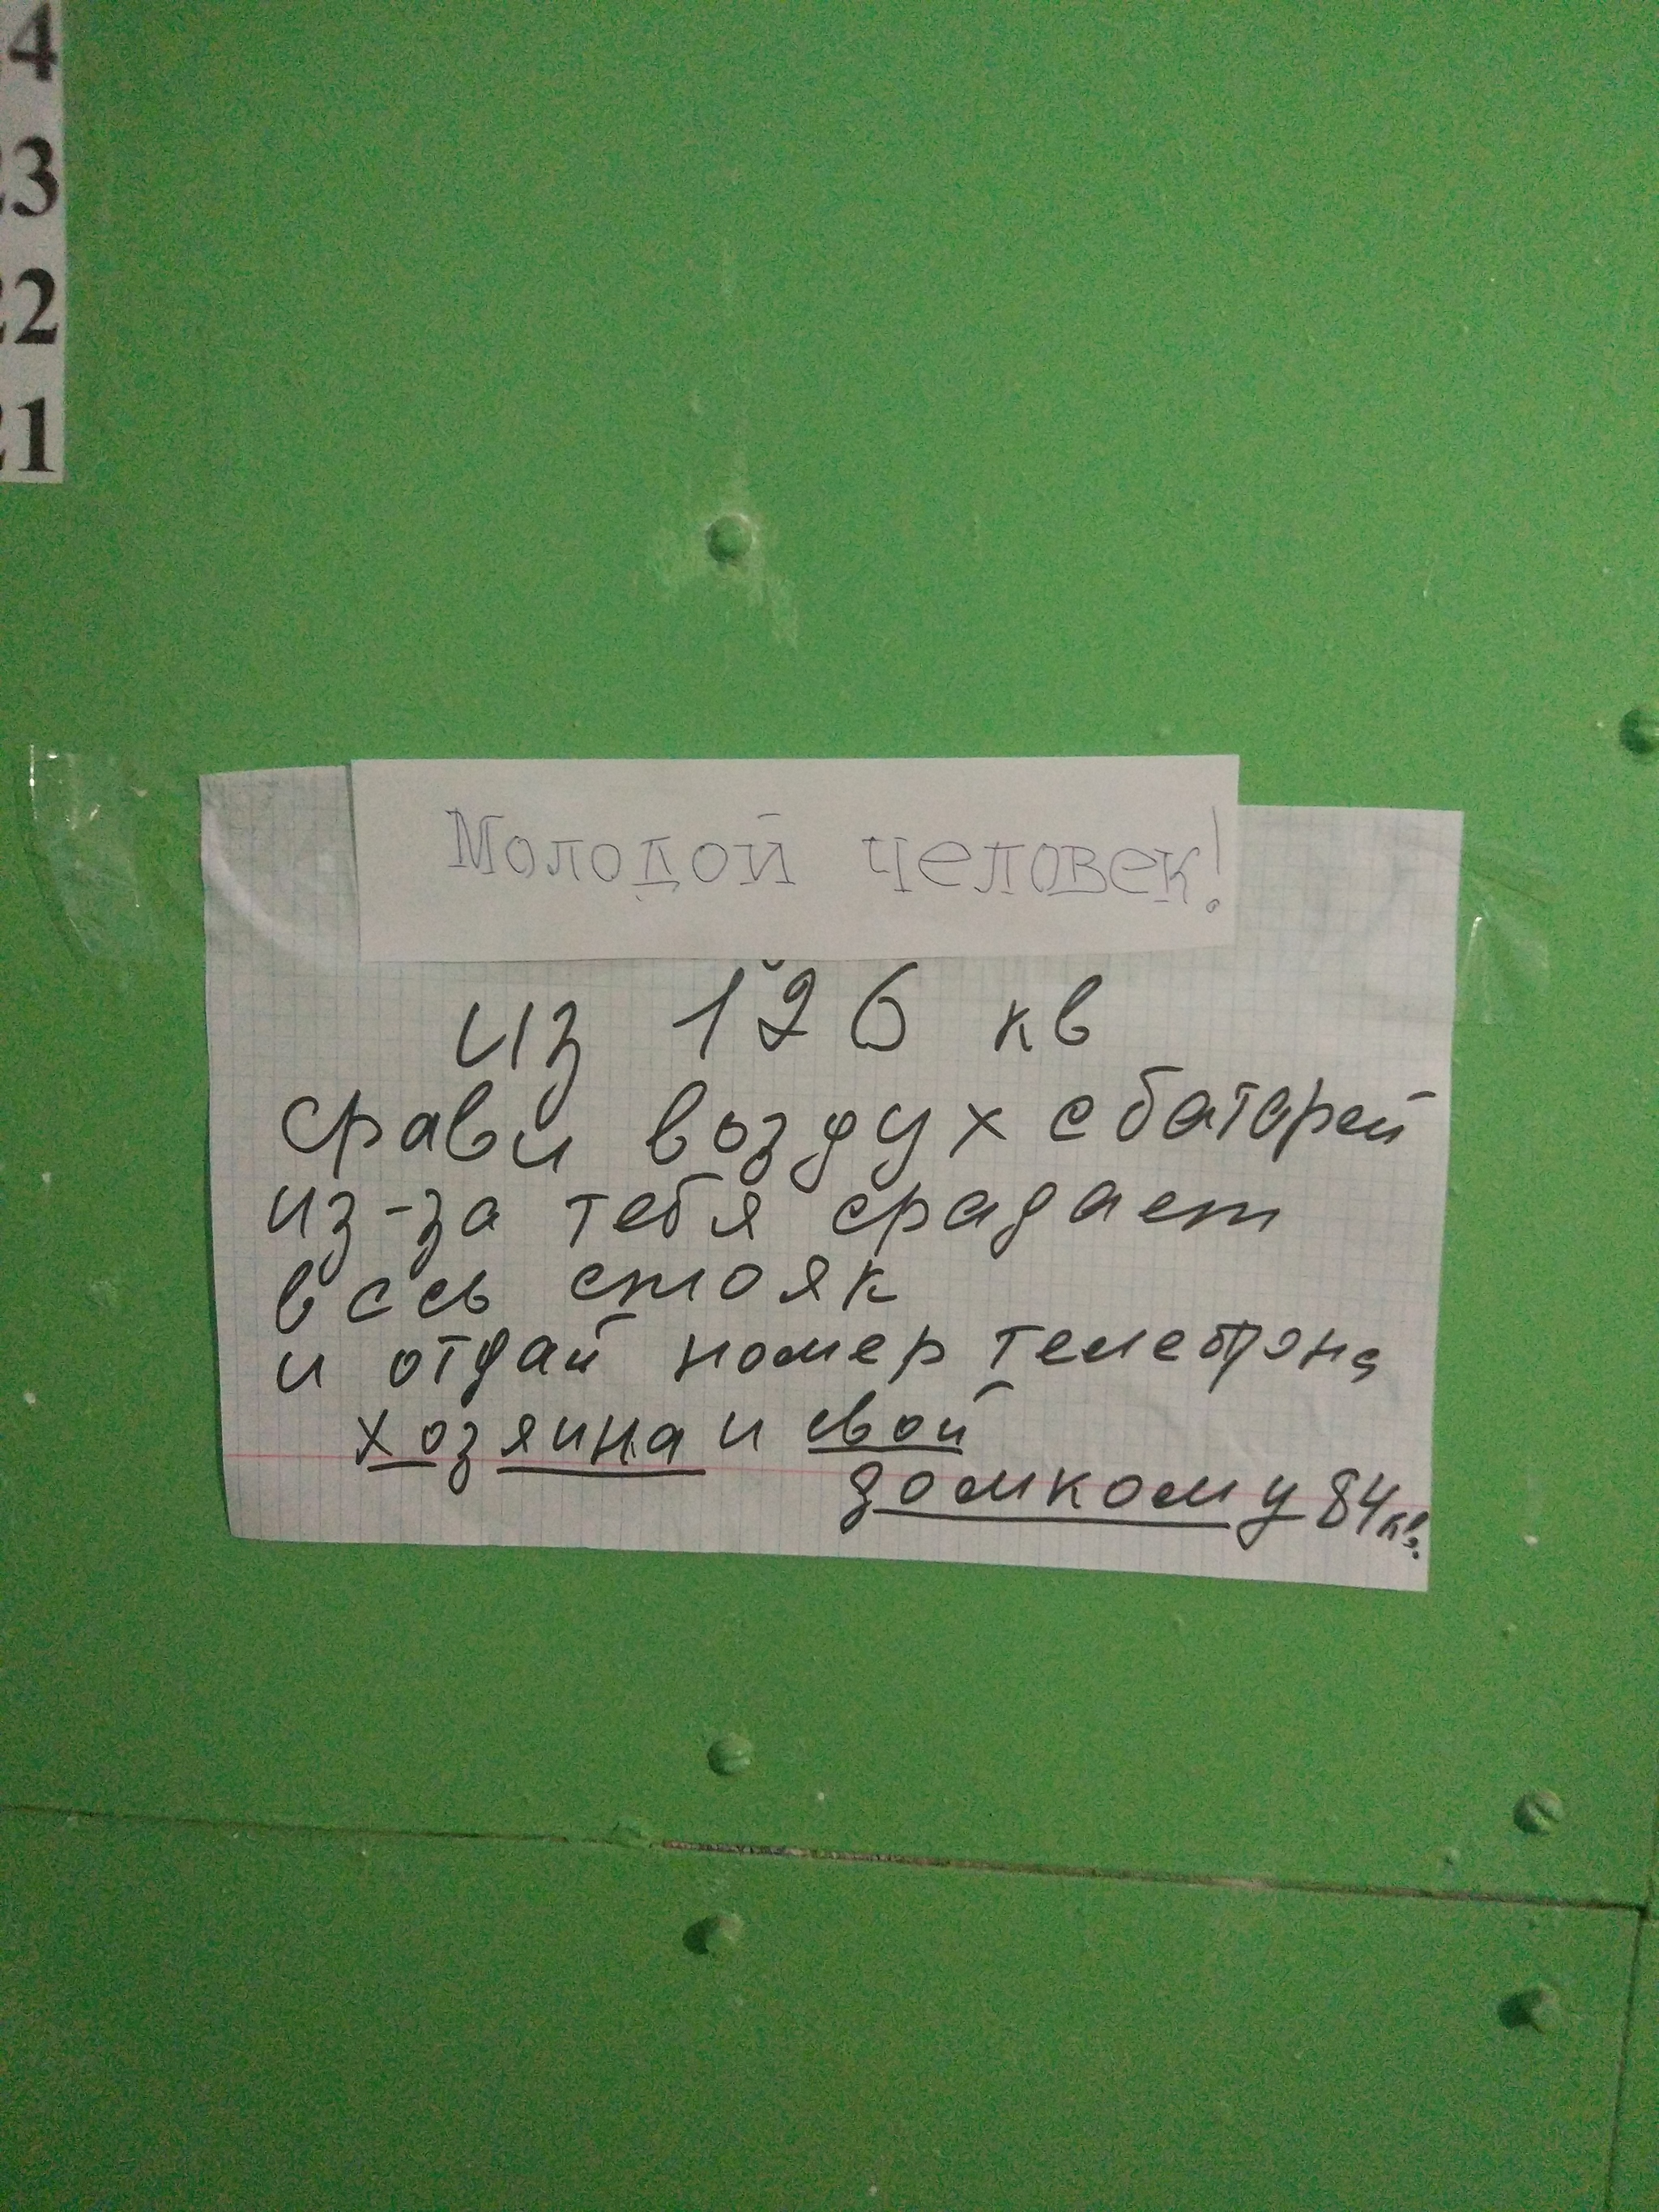 4
23
22
21
Молодой человек!
из 126 кв
срави воздух с батарей
из-за тебя срадает
весь стояк
и отдай номер телефона
хозяина и свой
домкому 84кв.